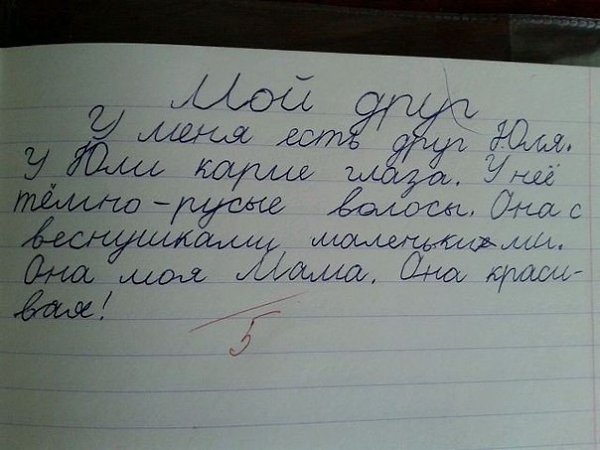 Мой друг
У меня есть друг Юля.
У Юли карие глаза. У неё
тёмно-русые волосы. Она с
веснушками маленькими.
Она моя Мама. Она краси-
вая!
5